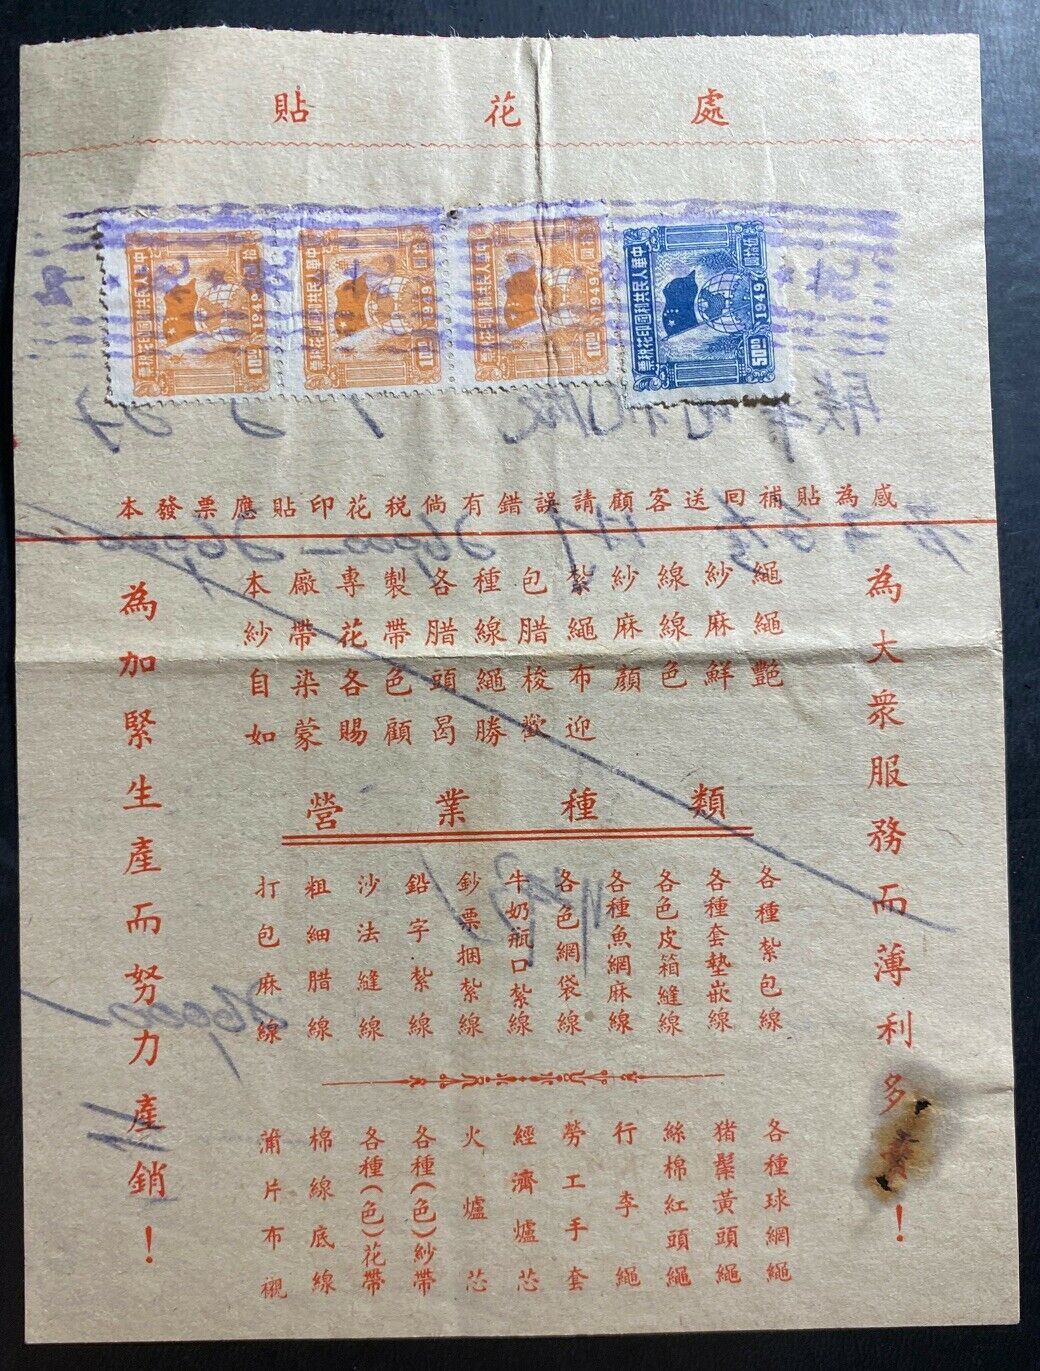 貼花處
中華人民共和國印花稅票
拾圓
1949
10.00
中華人民共和國印花稅票
拾圓
1949
10.00
中華人民共和國印花稅票
拾圓
1949
10.00
中華人民共和國印花稅票
伍拾圓
1949
50.00
本發票應貼印花稅倘有錯誤請顧客送回補貼為感
為大衆服務而薄利多賣!
本廠專製各種包紮紗線紗繩
紗帶花帶腊線腊繩麻線麻繩
自染各色頭繩梭布顏色鮮艷
如蒙賜顧曷勝歡迎
營業種類
各種紮包線
各種套墊嵌線
各色皮箱縫線
各種魚網麻線
各色網袋線
牛奶瓶口紮線
鈔票捆紮線
鉛字紮線
沙法縫線
粗細腊線
打包麻線
各種球網繩
猪鬃黃頭繩
絲棉紅頭繩
行李繩
勞工手套
經濟爐芯
火爐芯
各種(色)紗帶
各種(色)花帶
棉線底線
蒲片布襯
為加緊生產而努力產銷!